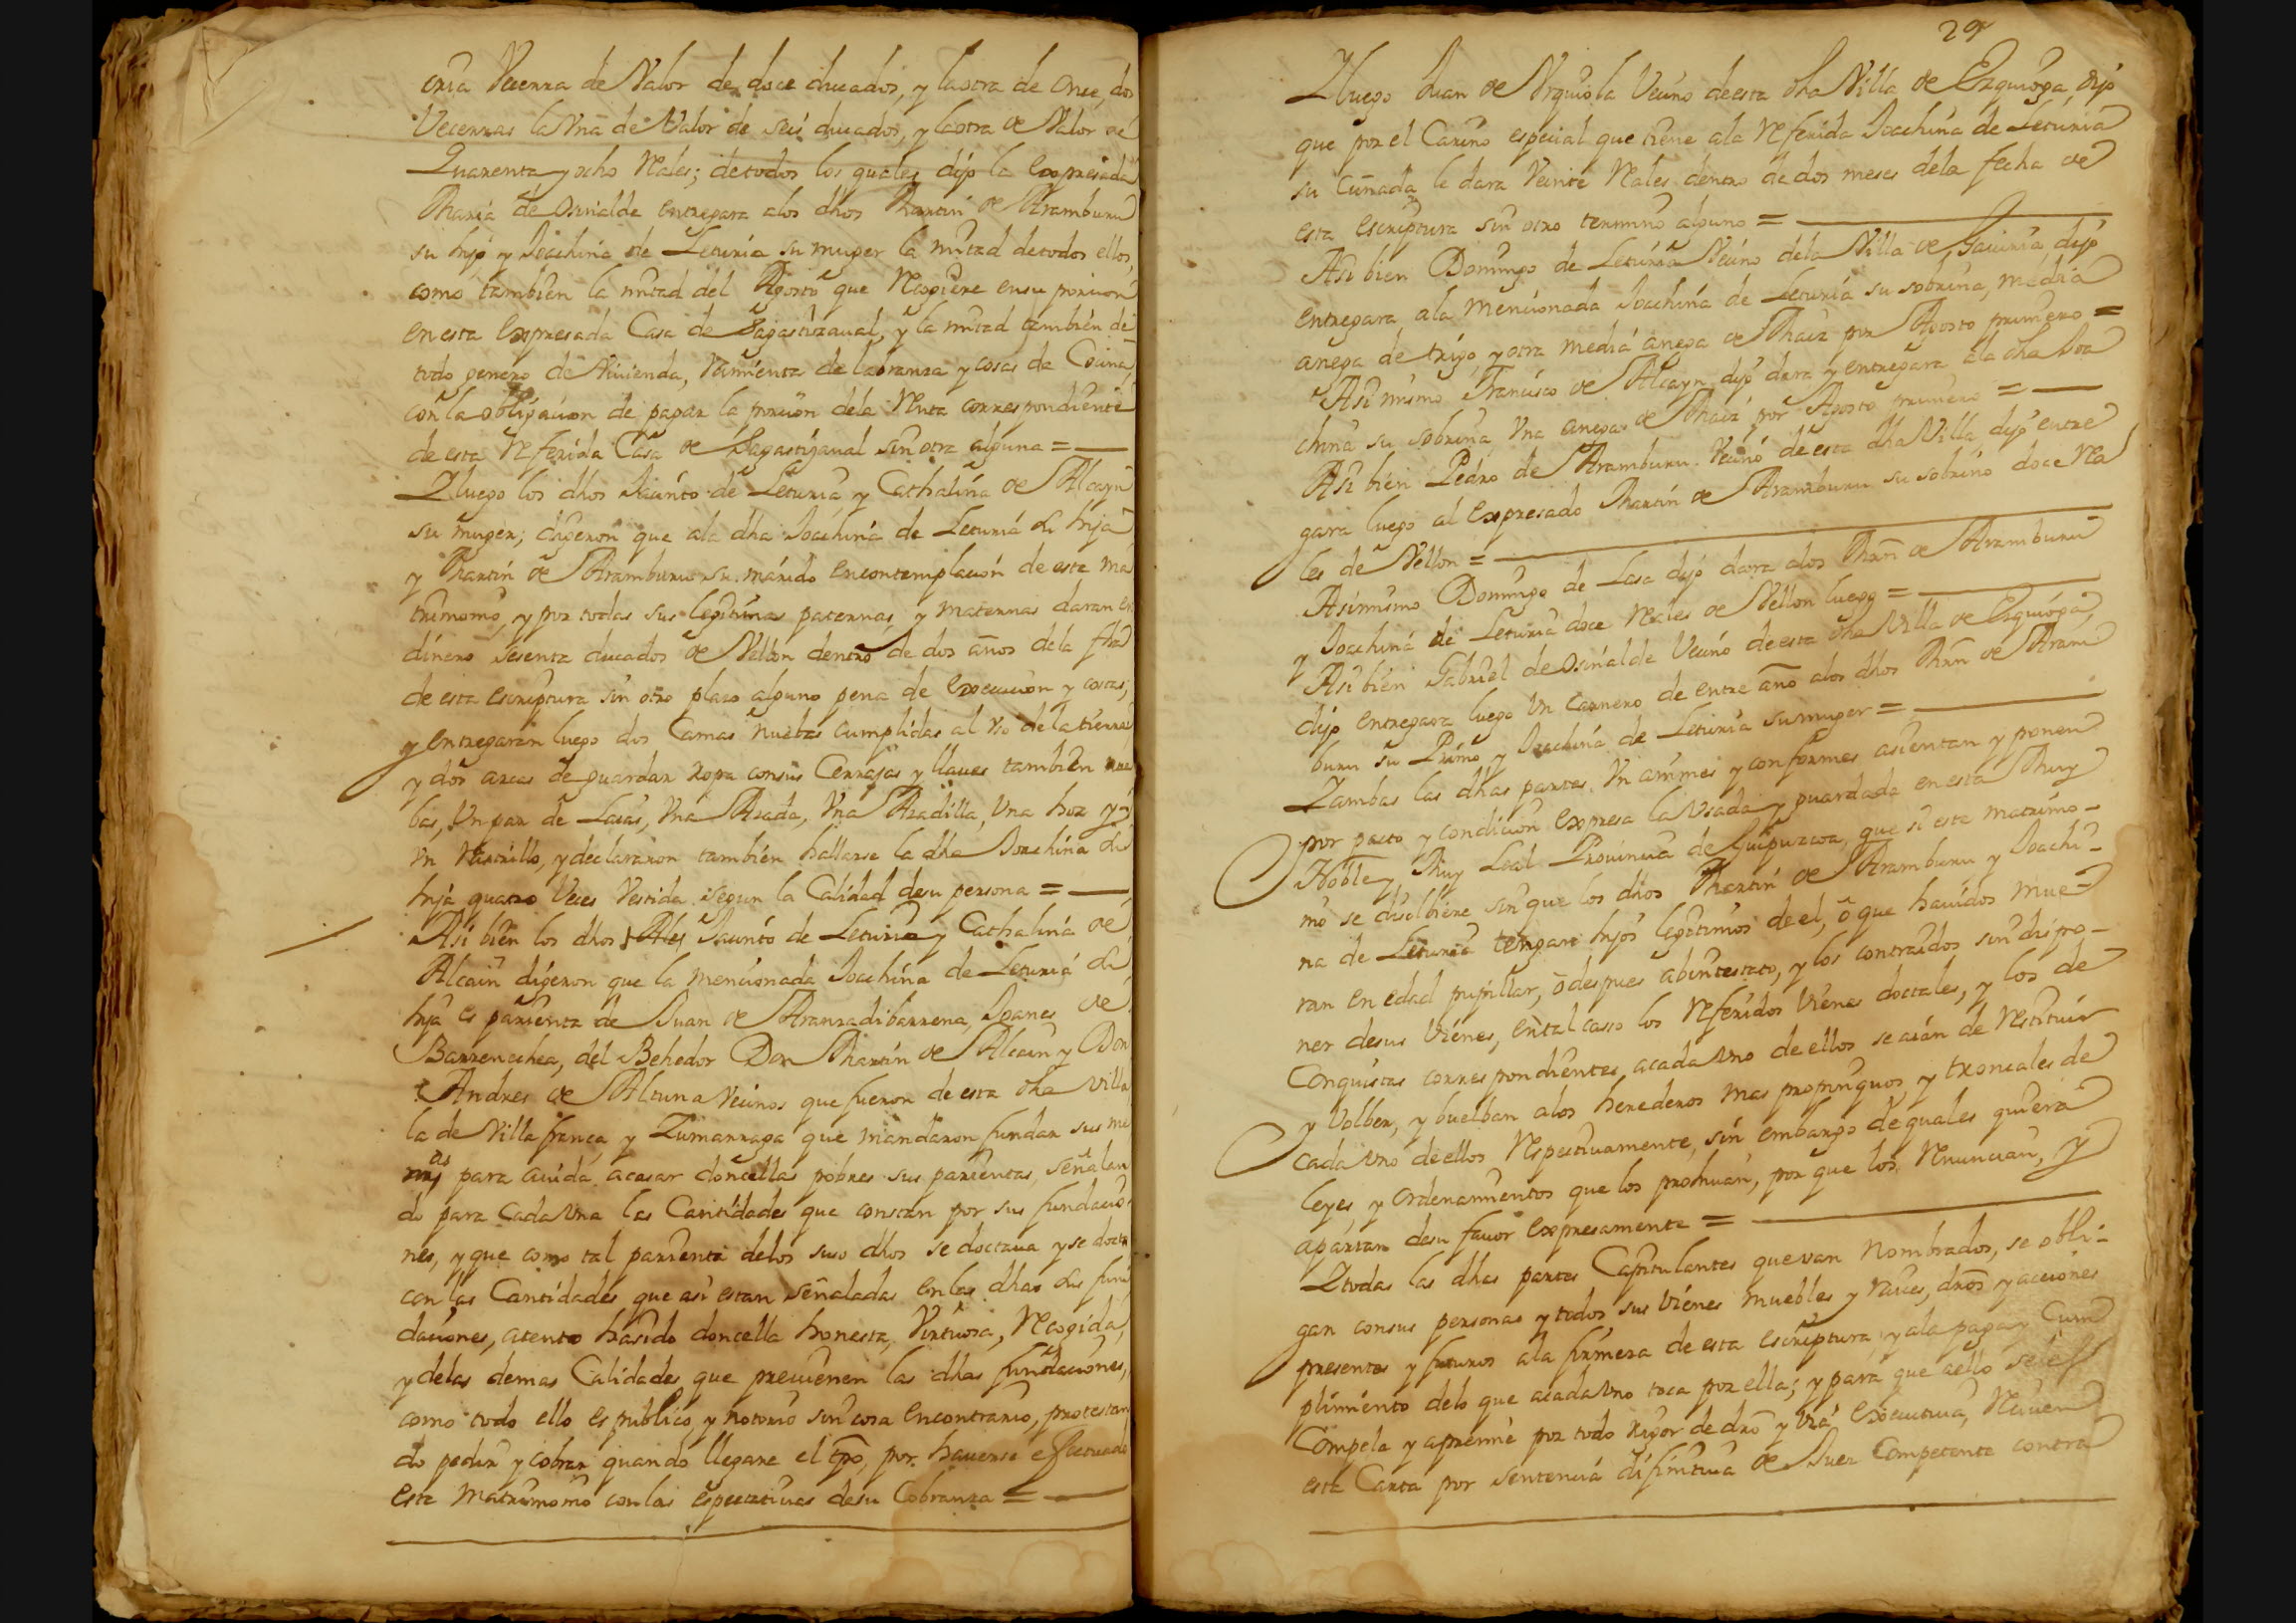 cria Vecerra de Valor de doce ducados, y la otra de Once, dos
Vecerras la Vna de Valor de seis ducados, y la otra de Valor de
Quarenta y ocho Rales; de todos los quales dijo la Expresada
Maria de Osinalde entregara alos dhos Martin de Aramburu
su hijo y Joachina de Leturia su muger la mitad de todos ellos,
como tambien la mitad del Agosto que Recogiere en su porcion
en esta Expresada Casa de Sagastizaual, y la mitad tambien de
todo genero de Viuienda, Ramienta de labranza y cosas de Cocina
con la obligacion de pagar la porcion dela Renta correspondiente
de esta Referida Casa de Sagastizaual sin otra alguna =
Y luego los dhos Jacinto de Leturia y Cathalina de Alcayn
su muger; digeron que ala dha Joachina de Leturia su hija
y Martin de Aramburu su marido en contemplacion de este ma
trimonio, y por todas sus legitimas paternas, y maternas daran en
dinero sesenta ducados de Vellon dentro de dos años dela fha
de esta escriptura sin otro plazo alguno pena de Execucion y costas;
y entregaran luego dos Camas nuebas cumplidas al vso dela tierra
y dos arcas de guardar ropa con sus Cerrajas y llaues tambien nue
bas, Vn par de Laias, Vna Azada, Vna Azadilla, Vna hoz y
Vn Rastrillo, y declararon tambien hallarse la dha Joachina su
hija quatro Veces Vestida segun la Calidad de su persona =
Asi bien los dhos Jacinto de Leturia y Cathalina de
Alcain digeron que la mencionada Joachina de Leturia su
hija es parienta de Juan de Aranzadibarrena, Joanes de
Barrenechea, del Behedor Don Martin de Alcain y Don
Andres de Altuna Vecinos que fueron de esta dha villa
la de Villafranca y Zumarraga que mandaron fundar sus me
rias para aiuda a casar doncellas pobres sus parientas, señalan
do para Cada Vna las Cantidades que constan por sus fundacio
nes, y que como tal parienta delos suso dhos se doctaua y se docta
con las Cantidades que asi estan señaladas en las dhas sus fun
daciones, atento ha sido doncella honesta, Virtuosa, Recogida,
y delas demas Calidades que preuienen las dhas fundaciones,
como todo ello es publico y notorio sin cosa en contrario, protestan
do pedir y cobrar quando llegare el tpo, por hauerse efectuado
este matrimonio con las espectatiuas de su Cobranza =
29
Y luego Juan de Vrquiola Vecino de esta dha Villa de Ezquioga, dijo
que por el Cariño especial que tiene ala Referida Joachina de Leturia
su Cuñada le dara Veinte Rales dentro de dos meses dela fecha de
esta escriptura sin otro termino alguno =
Asi bien Domingo de Leturia Vecino dela Villa de Gauiria, dijo
entregara ala mencionada Joachina de Leturia su sobrina, media
anega de trigo, y otra media anega de Maiz por Agosto primero =
Asi mismo Francisco de Alcayn dijo dara y entregara ala dha Joa
china su sobrina Vna anega de Maiz por Agosto primero =
Asi bien Pedro de Aramburu Vecino de esta dha Villa dijo entre
gara luego al Expresado Martin de Aramburu su sobrino doce Rea
les de Vellon =
Asimismo Domingo de Lasa dijo dara alos Mrn de Aramburu
y Joachina de Leturia doce Reales de Vellon luego =
Asi bien Gabriel de Osinalde Vecino de esta dha Villa de Ezquioga,
dijo entregara luego Vn Carnero de entre año alos dhos Mrn de Aram
buru su Primo y Joachina de Leturia su muger =
Y ambas las dhas partes Vnanimes y conformes asientan y ponen
por pacto y condicion Expresa la Vsada y guardada en esta Muy
Noble y Muy Leal Prouincia de Guipuzcoa, que si este matrimo-
nio se disolbiere sin que los dhos Martin de Aramburu y Joachi-
na de Leturia tengan hijos legitimos de el, o que hauidos mue-
ran en edad pupillar, o despues abintestato, y los contraidos sin dispo-
ner de sus Vienes, en tal casso los Referidos Vienes doctales, y los de
Conquistas correspondientes, a cada Vno de ellos se aian de Restituir
y Volber, y buelban alos herederos mas propinquos y tronçales de
cada Vno de ellos Respectiuamente, sin embargo de quales quiera
leyes y ordenamientos que los prohiuan, por que los Renuncian, y
apartan de su fauor Expresamente =
Y todas las dhas partes Capitulantes que van nombrados, se obli-
gan con sus personas y todos sus Vienes muebles y raices, dros y acciones
presentes y futuros ala firmeza de esta escriptura, y ala paga y Cum
plimiento delo que a cada Vno toca por ella; y para que aello se les
Compela y apremie por todo rigor de dro y Via Executiua, Reciuen
esta Carta por sentencia difinitiua de Juez Competente contra